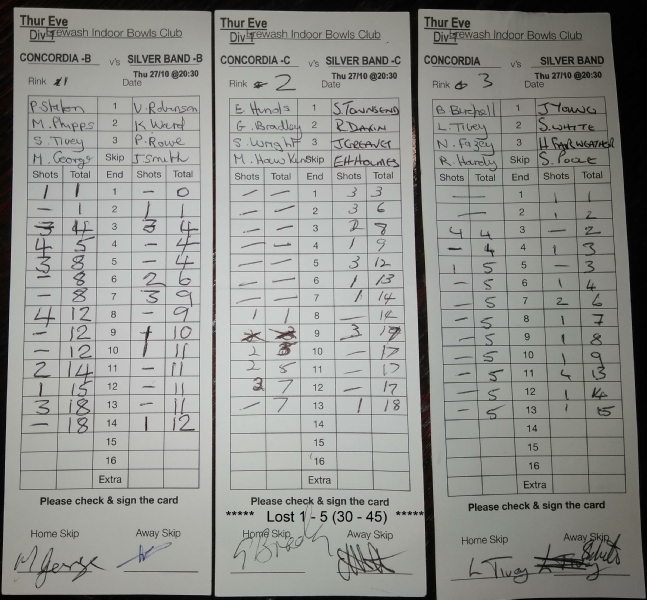 Thur Eve
Div 1 Erewash Indoor Bowls Club
CONCORDIA -B v's SILVER BAND -B
Thu 27/10 @20:30
Rink 1 Date
P. 1 V. Robinson
M. Phipps 2 K Ward
S. Tivey 3 P. Rowe
M. George Skip J Smith
Shots Total End Shots Total
1 1 1 – 0
– 1 2 1 1
3 4 3 3 4
4 5 4 – 4
3 8 5 – 4
– 8 6 2 6
– 8 7 3 9
4 12 8 – 9
– 12 9 1 10
– 12 10 1 11
2 14 11 – 11
1 15 12 – 11
3 18 13 – 11
– 18 14 1 12
15
16
Extra
Please check & sign the card
Home Skip Away Skip
M George
Thur Eve
Div 1 Erewash Indoor Bowls Club
CONCORDIA -C v's SILVER BAND -C
Thu 27/10 @20:30
Rink 2 Date
E Hinds 1 S. TOWNSEND
G. Bradley 2 R DAKIN
S. Wright 3 J GREAVES
M. Hawkins Skip E H HOLMES
Shots Total End Shots Total
– – 1 3 3
– – 2 3 6
– – 3 2 8
– – 4 1 9
– – 5 3 12
– – 6 1 13
– – 7 1 14
1 1 8 – 14
9 3 17
2 3 10 – 17
2 5 11 – 17
2 7 12 – 17
– 7 13 1 18
14
15
16
Extra
Please check & sign the card
***** Lost 1 - 5 (30 - 45) *****
Home Skip Away Skip
G Bradley
Thur Eve
Div 1 Erewash Indoor Bowls Club
CONCORDIA v's SILVER BAND
Thu 27/10 @20:30
Rink 3 Date
B Birchell 1 J YOUNG
L. Tivey 2 S. WHITE
N. Fazey 3 H FAIRWEATHER
R. Hardy Skip S. POOLE
Shots Total End Shots Total
– 1 1 1
– 2 1 2
4 4 3 – 2
– 4 4 1 3
1 5 5 – 3
– 5 6 1 4
– 5 7 2 6
– 5 8 1 7
– 5 9 1 8
– 5 10 1 9
– 5 11 4 13
– 5 12 1 14
– 5 13 1 15
14
15
16
Extra
Please check & sign the card
Home Skip Away Skip
L Tivey